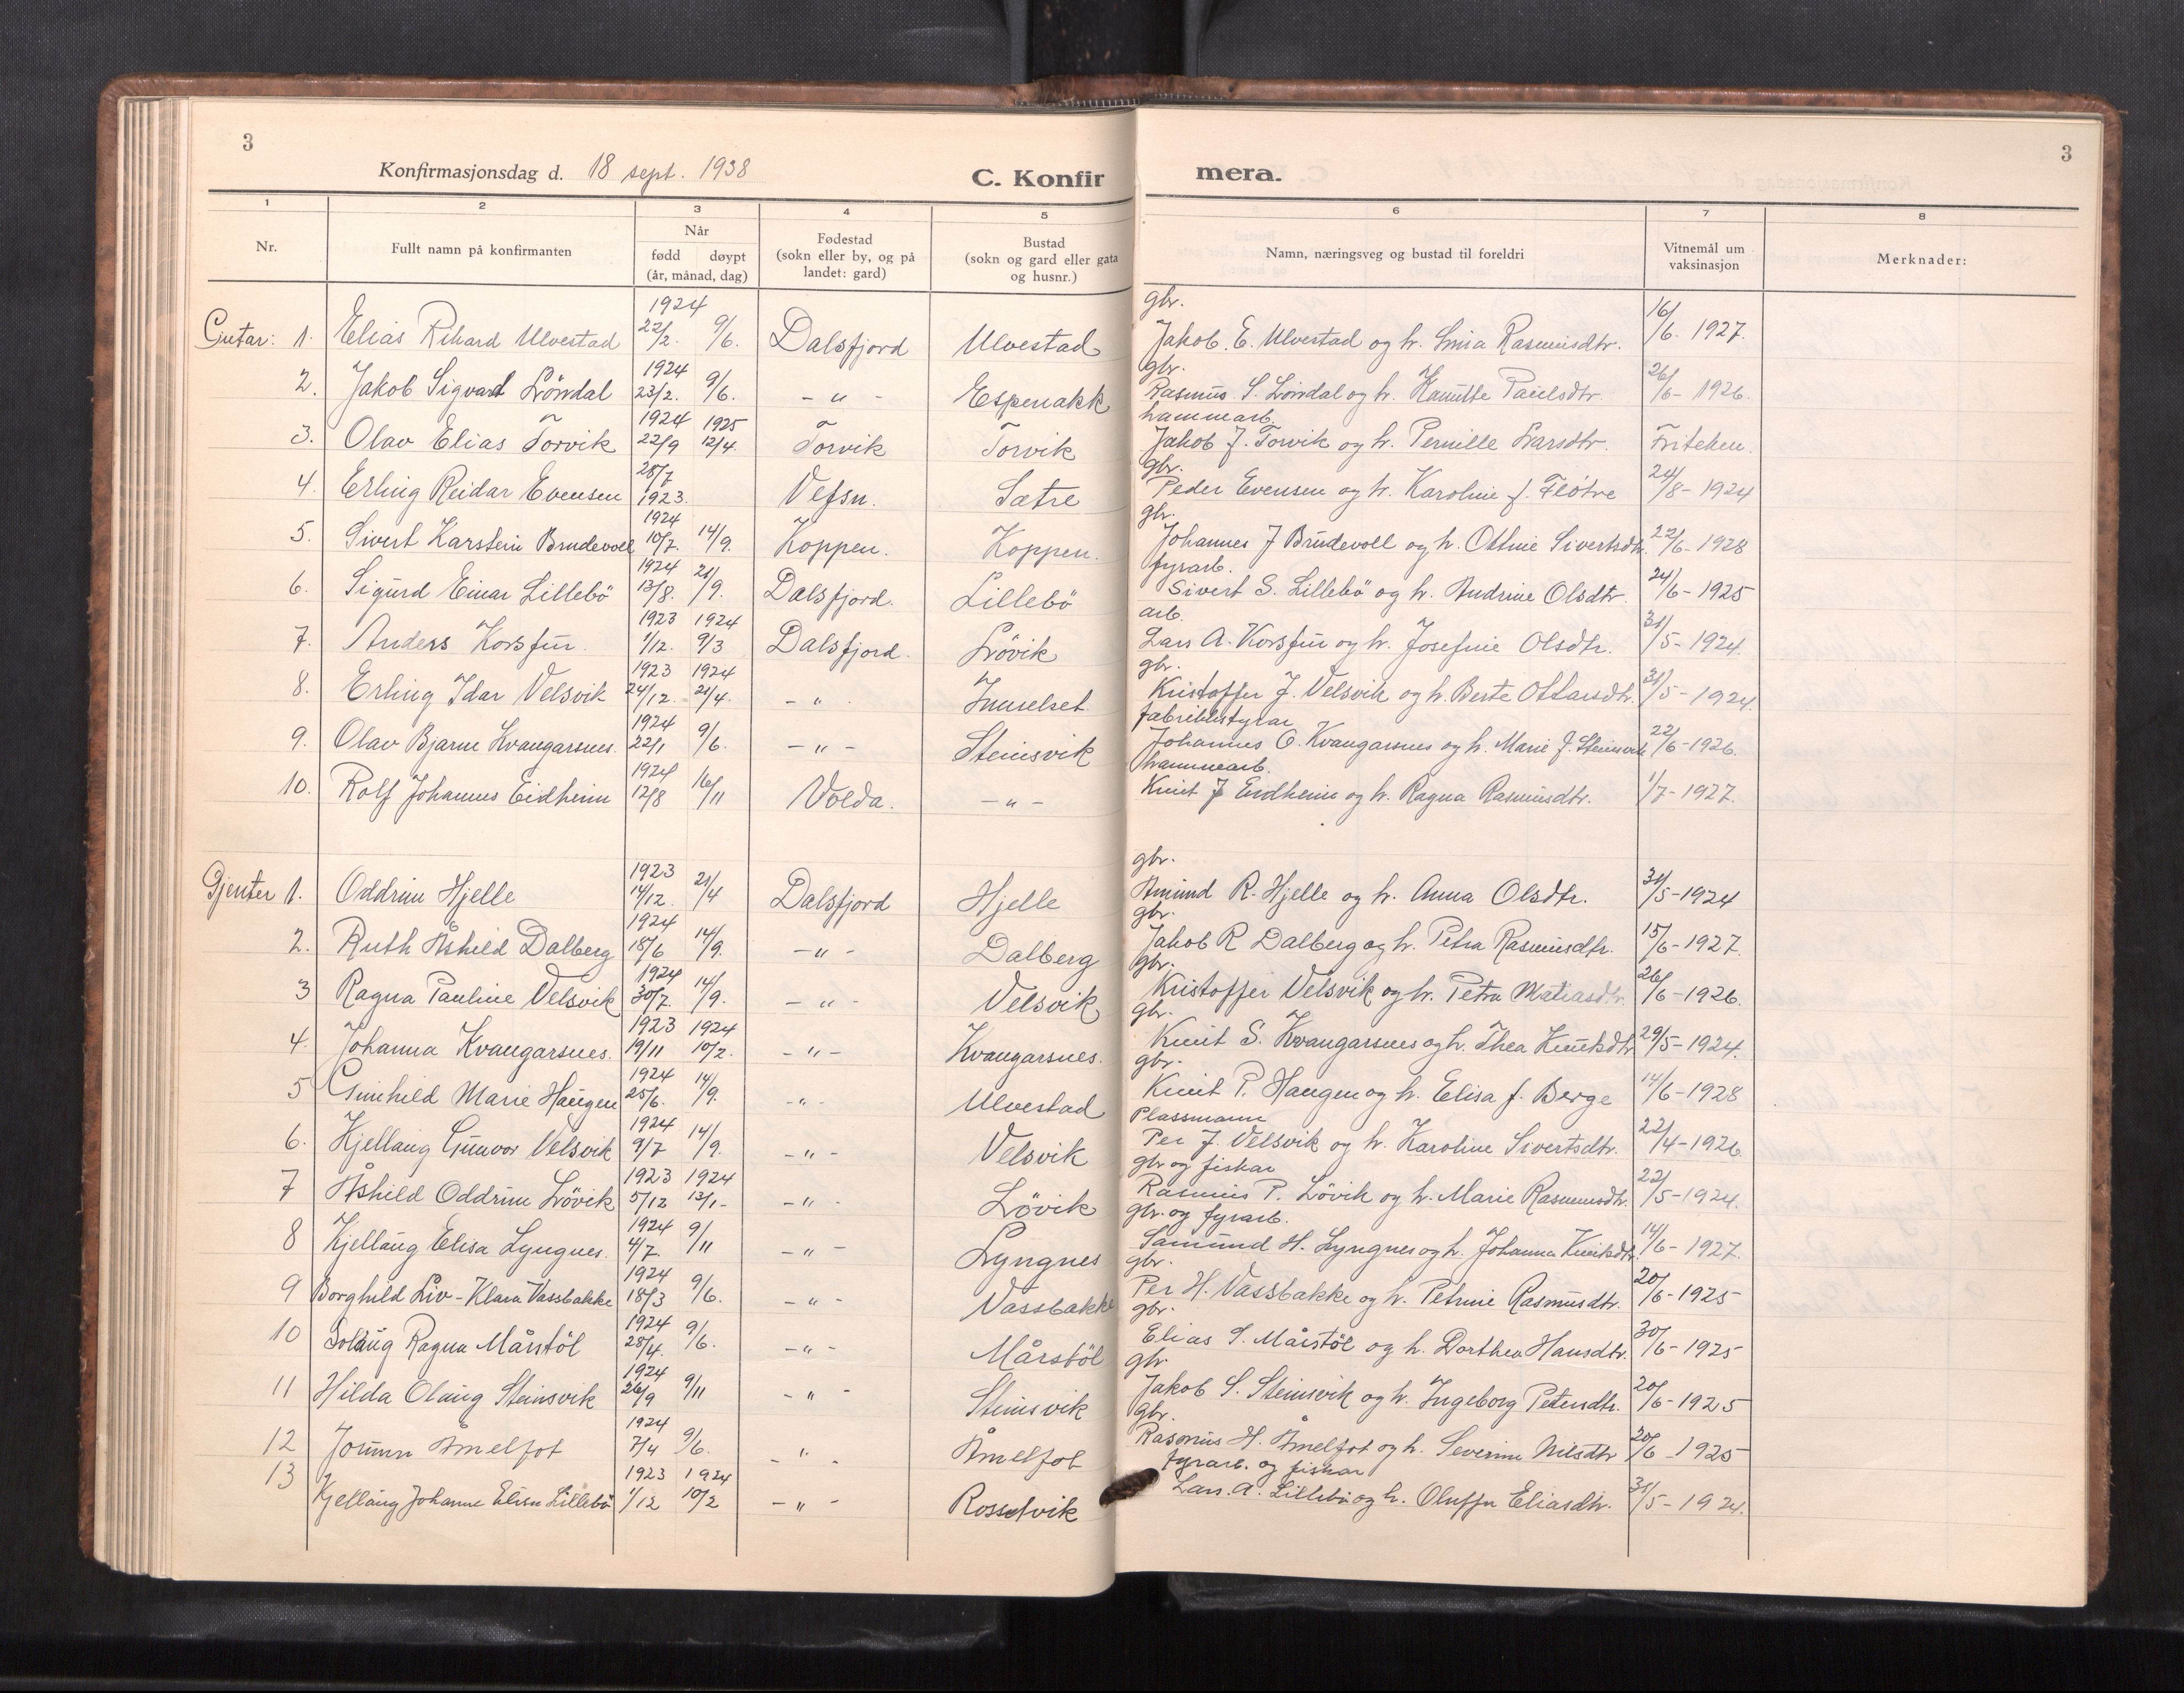 3
3
Konfirmasjonsdag d. 18 sept. 1938
C. Konfir mera.
1 2 3 4 5 6 7 8
Nr. Fullt namn på konfirmanten Når fødd døypt (år, månad, dag) Fødestad (sokn eller by, og på landet: gard) Bustad (sokn og gard eller gata og husnr.) Namn, næringsveg og bustad til foreldri Vitnemål um vaksinasjon Merknader:
1924 gbr.
Gutar: 1. Elias Rikard Ulvestad 22/2. 9/6. Dalsfjord Ulvestad Jakob. E. Ulvestad og h. Rasmusdtr. 16/6. 1927.
1924 gbr.
2. Jakob Sigvard Löndal 23/2. 9/6. - " - Espenakk Rasmus S. Löndal og h. Paulsdtr. 26/6 - 1926.
1924 1925 hammarb.
3. Olav Elias Torvik 22/9 12/4. Torvik Torvik Jakob J. Torvik og h. Pernille Larsdtr. Friteken.
28/7 gbr.
4. Erling Reidar Evensen 1923. Vefsn. Sætre Peder Evensen og h. Karoline f. Flötre 24/8 - 1924
1924 gbr.
5. Sivert Karstein Brudevoll 10/7. 14/9. Koppen. Koppen. Johannes J Brudevoll og h. Othine Sivertsdtr. 22/6 - 1928
1924 fyrarb.
6. Sigurd Einar Lillebö 13/8. 21/9. Dalsfjord. Lillebö Sivert S. Lillebö og h. Andrine Olsdtr. 24/6 - 1925
1923 1924 arb.
7. Anders Korsfur. 1/12. 9/3 Dalsfjord. Lövik Lars A. Korsfur og h. Josefine Olsdtr. 31/5 - 1924.
1923 1924 gbr.
8. Erling Idar Velsvik 24/12. 21/4. - " - Innselset Kristoffer J. Velsvik og h. Berte Ottarsdtr. 31/5 - 1924.
1924 fabrikkstyrar
9. Olav Bjarne Kvangarsnes. 22/1 9/6. - " - Steinsvik Johannes O. Kvangarsnes og h. Marie J. Steinsvik 22/6 - 1926.
1924 hammarb.
10. Rolf Johannes Eidheim 12/8 16/11 Volda. - " - Knut J Eidheim og h. Ragna Rasmusdtr. 1/7 - 1927.
1923 gbr.
Gjenter 1. Oddrun Hjelle 14/12. 21/4 Dalsfjord Hjelle Amund R. Hjelle og h. Anna Olsdtr. 31/5 - 1924
1924 gbr.
2. Ruth Åshild Dalberg 18/6 14/9. - " - Dalberg Jakob R Dalberg og h. Petra Rasmusdtr. 15/6 - 1927.
1924 gbr.
3 Ragna Pauline Velsvik 30/7. 14/9. - " - Velsvik Kristoffer Velsvik og h. Petra Matiasdtr. 26/6 - 1926.
1923 1924 gbr.
4. Johanna Kvangarsnes. 19/11 10/2. - " - Kvangarsnes. Knut S. Kvangarsnes og h. Thea Knutsdtr. 29/5 - 1924.
1924 gbr.
5 Gunhild Marie Haugen 25/6. 14/9. - " - Ulvestad Knut P. Haugen og h. Elisa f. Berge 14/6 - 1928
1924 Plassmann
6. Kjellaug Gunvor Velsvik 9/7 14/9. - " - Velsvik Per J. Velsvik og h. Karoline Sivertsdtr. 22/4 - 1926
1923 1924 gbr og fiskar
7 Åshild Oddrun Lövik 5/12 13/1 - - " - Lövik Rasmus P. Lövik og h. Marie Rasmusdtr. 22/5 - 1924.
1924 gbr. og fyrarb.
8 Kjellaug Elisa Lyngnes. 4/7. 9/11 - " - Lyngnes Samund H. Lyngnes og h. Johanna Knutsdtr. 14/6 - 1927.
1924 gbr.
9 Borghild Liv-Klara Vassbakke 18/3 9/6. - " - Vassbakke Per H. Vassbakke og h. Petrine Rasmusdtr. 20/6 - 1925
1924 gbr.
10 Solaug Ragna Mårstöl 28/4. 9/6. - " - Mårstöl Elias S. Mårstöl og h. Dorthea Hansdtr. 30/6 - 1925
1924 gbr
11 Hilda Olaug Steinsvik 26/9 9/11 - " - Steinsvik Jakob S. Steinsvik og h. Ingeborg Petersdtr. 20/6 - 1925
1924 gbr.
12 Jorunn Åmelfot 7/4 9/6. - " - Åmelfot Rasmus H. Åmelfot og h. Severine Nilsdtr 20/6 - 1925
1923 1924 fyrarb. og fiskar
13 Kjellaug Johanne Elisa Lillebö 1/12 10/2 - " - Rossetvik Lars. A. Lillebö og h. Oluffa Eliasdtr. 31/5 - 1924.